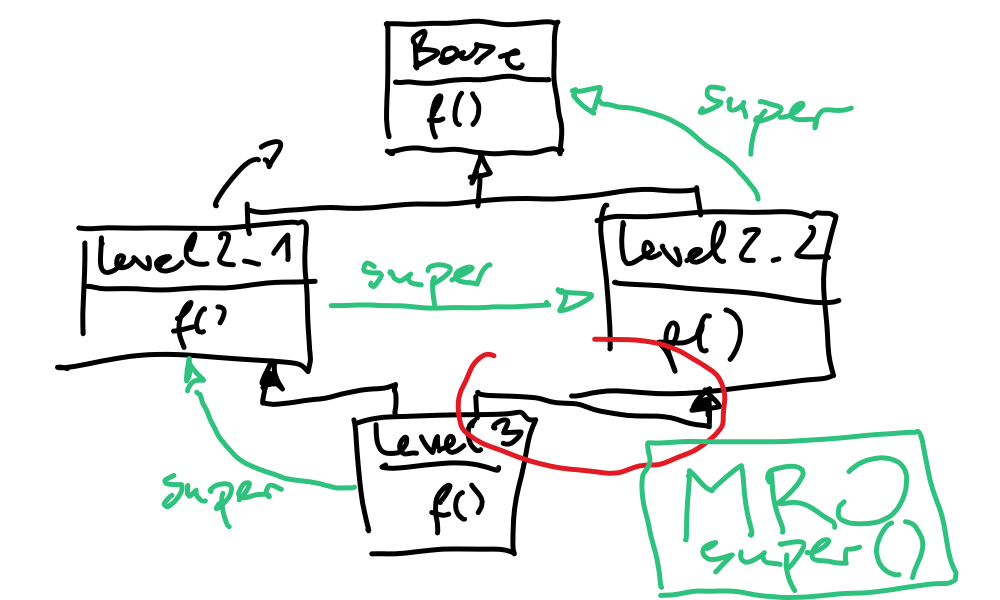 Base
f()
super
Level2_1
f()
super
Level2_2
f()
Level 3
f()
super
MRO
super()